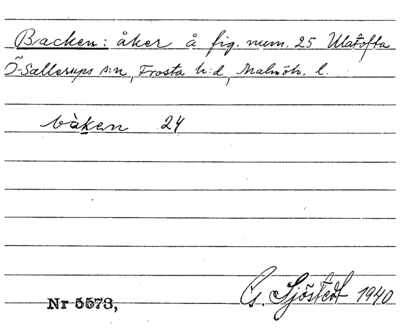 Backen: åker å fig. num. 25 Ulatofta
Ö-Sallerups s:n, Frosta h:d, Malmöh. l.
bàḱen 24
G. Sjöstedt 1940
Nr 5573,